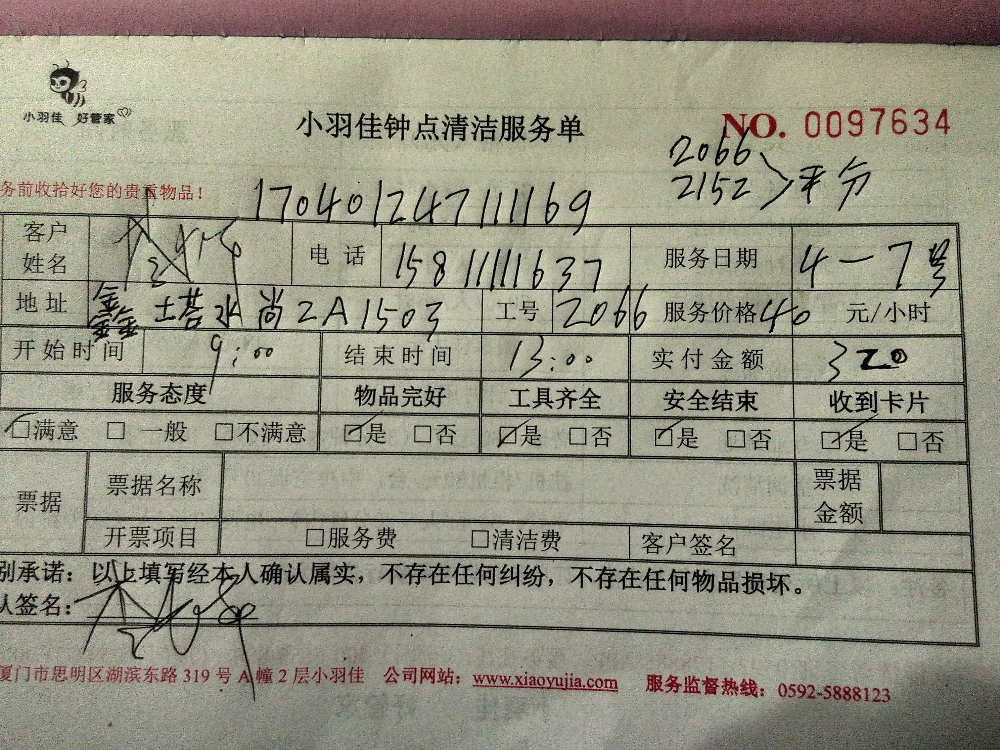 小羽佳 好管家
小羽佳钟点清洁服务单
NO. 0097634
2066
2152 平分
务前收拾好您的贵重物品！
170401247111169
客户姓名 电话 15811111637 服务日期 4-7号
地址 鑫塔水尚2A1503 工号 2066 服务价格40 元/小时
开始时间 9:00 结束时间 13:00 实付金额 320
服务态度 物品完好 工具齐全 安全结束 收到卡片
☑满意 □一般 □不满意 ☑是 □否 ☑是 □否 ☑是 □否 ☑是 □否
票据 票据名称 票据金额
开票项目 □服务费 □清洁费 客户签名
别承诺：以上填写经本人确认属实，不存在任何纠纷，不存在任何物品损坏。
认签名：
厦门市思明区湖滨东路 319 号 A 幢 2 层小羽佳 公司网站：www.xiaoyujia.com 服务监督热线：0592-5888123